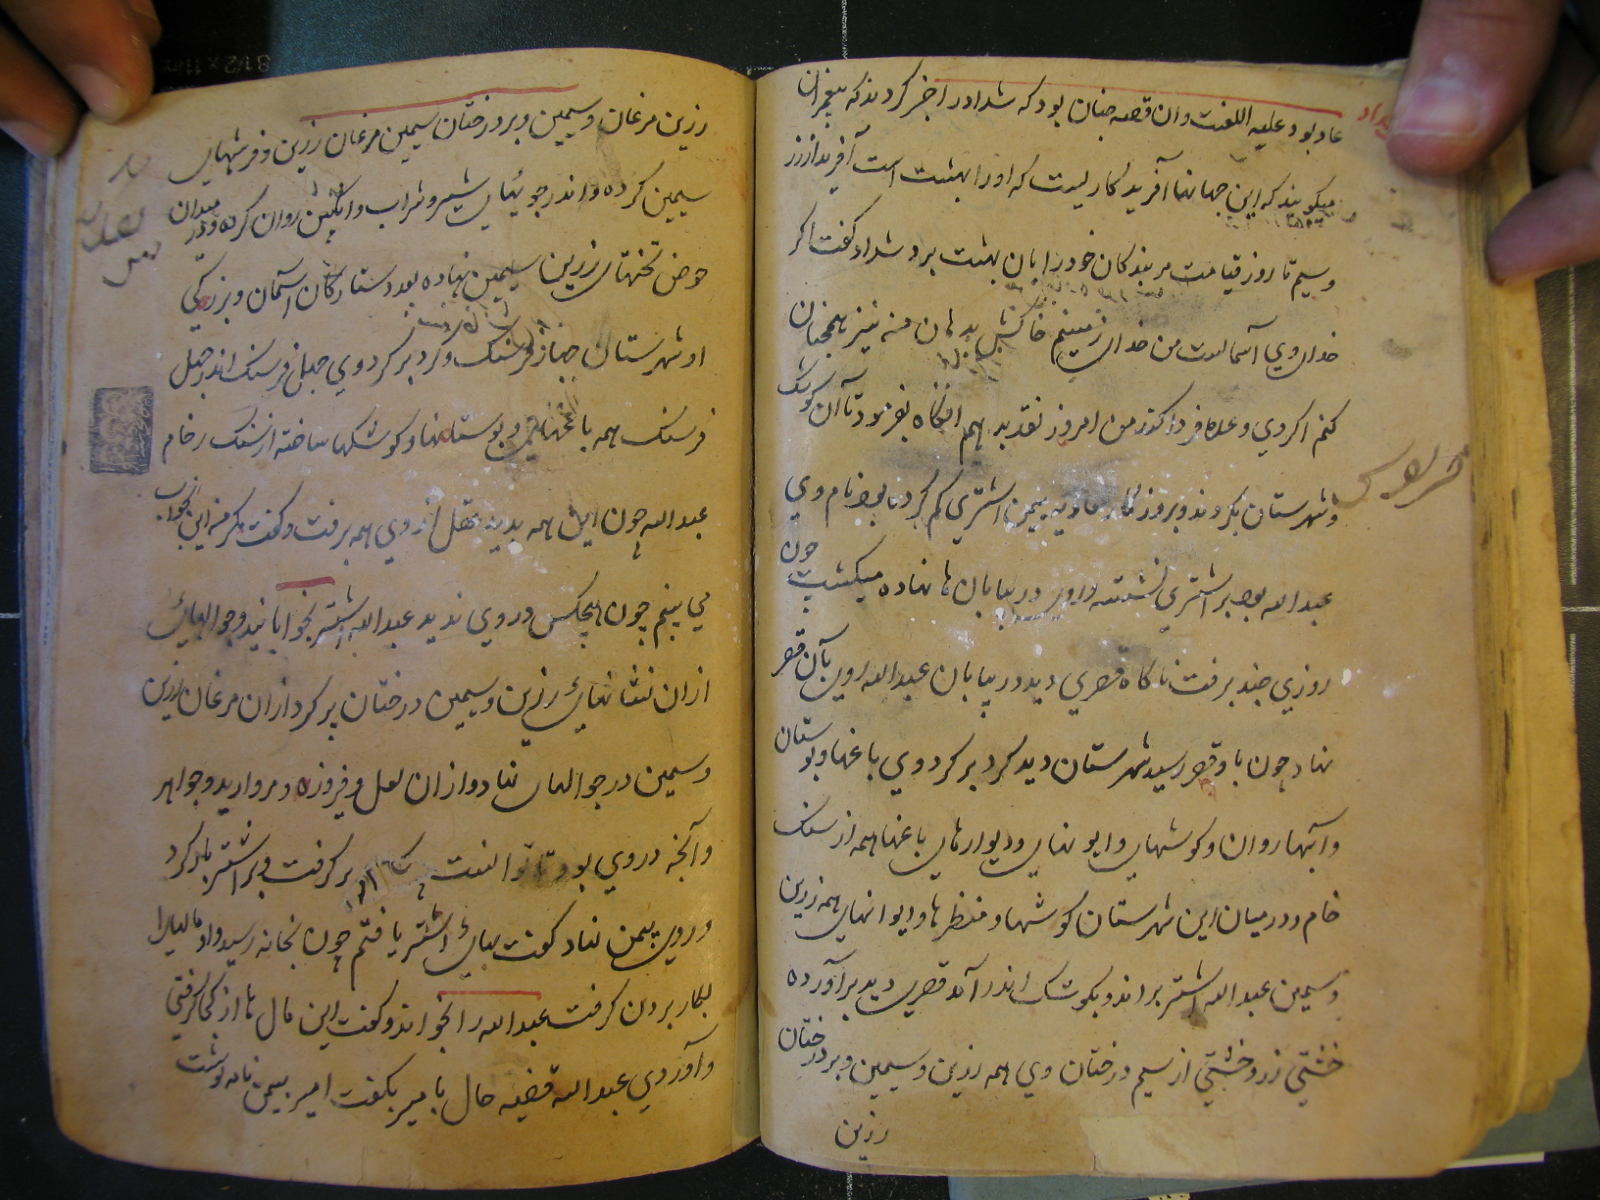 عاد بود علیه اللعنت و ان قصه چنان بود که شداد را خبر کردند که پیغمبران
میکویند که این جهانها آفریدکاریست که او را بهشت است آفریده از زر
و سیم تا روز قیامت مر بندکان خود را بان بهشت برد شداد کفت اکر
خدای وی آسمانست من خدای زمینم بدهان منه نیز همچنان
کنم اکر وی وعده فردا کند من امروز نقد بدهم انکاه بفرمود تا آن کوشک
و شهرستان بکردند و بروزکار معاویه بیمن اشتری کم کرده بود نام وی
عبدالله بود بر اشتری نشسته و روی در بیابان ها نهاده میکشت چون
روزی چند برفت ناکاه قصری دید در بیابان عبدالله روی بآن قصر
نهاد چون با وقصر رسید شهرستان دید کرد بر کرد وی باغها و بوستان
و آبها روان و کوشهای و ایوانهای و دیوارهای باغها همه از سنک
خام و در میان این شهرستان کوشها و منظرها و ایوانهای همه زرین
و سیمین عبدالله اشتر براند و بکوشک اندر آمد قصری دید برآورده
خشتی زر و خشتی از سیم درختان وی همه زرین و سیمین و بر درختان
زرین
زرین مرغان و سیمین و بر درختان سیمین مرغان زرین و فرشهای
سیمین کرده و اندر جویهای شیر و شراب و انکبین روان کرده و در میدان
حوض تختهای زرین سیمین نهاده بعدد ستارکان آسمان و بزرکی
او شهرستان چهار فرسنک و کرد بر کرد وی چهل فرسنک اندر چهل
فرسنک همه باغها و بوستانها و کوشکها ساخته از سنک رخام
عبدالله چون این همه بدید عقل از وی همه برفت و کفت مکر من این بخواب
می بینم چون هیچکس در وی ندید عبدالله اشتر بخوابانید و جوالهای
ازان نشانهای زرین و سیمین درختان پر کرد ازان مرغان زرین
و سیمین در جوالهای نهاد و ازان لعل و فیروزه و مروارید و جواهر
و آنچه در وی بود تا توانست برکرفت و بر اشتر بار کرد
و روی بیمن نهاد کفت بهای اشتر یافتم چون بخانه رسید و از مالها را
بکار بردن کرفت عبدالله را بخواندند و کفت این مال ها از کجا کرفتی
و آوردی عبدالله قضیه حال با میر بکفت امیر بیمن نامه نوشت